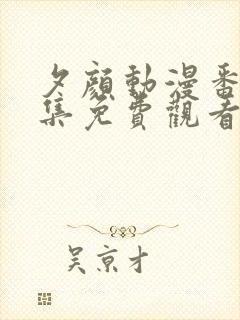 夕顔動漫番
集免費觀看
吴京才